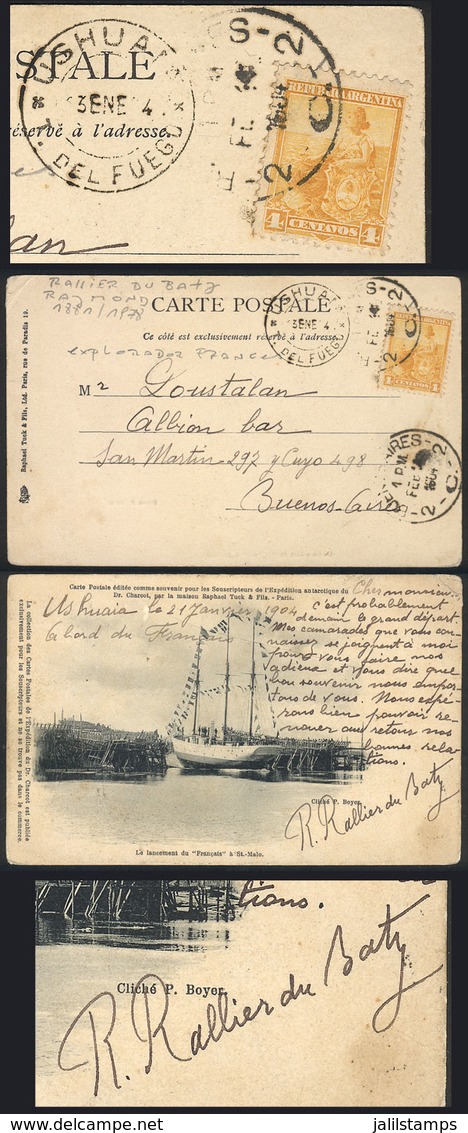 STALE
USHUAIA
3 ENE 4
DEL FUEGO
réservé à l'adresse.
RES-2
FE
1904
2
C
REPUBLICA ARGENTINA
4 CENTAVOS 4
lan
RALLIER DU BATY
RAYMOND
1881/1978
CARTE POSTALE
Ce côté est exclusivement réservé à l'adresse.
explorador France
USHUAIA
3 ENE 4
DEL FUEGO
4 CENTAVOS 4
Mr Loustalan
Albion bar
San Martin 297 y Cuyo 498
Buenos-Aires
Raphael Tuck & Fils, Ltd. Paris, rue de Paradis 19.
RES-2
1 PM
FEB
1904
2-C
Carte Postale éditée comme souvenir pour les Souscripteurs de l'Expédition antarctique du
Dr. Charcot, par la maison Raphael Tuck & Fils. - Paris.
La collection des Cartes Postales de l'Expédition du Dr. Charcot est publiée
exclusivement pour les Souscripteurs et ne se trouve pas dans le commerce.
Ushuaia le 21 Janvier 1904
à bord du Français
Cher monsieur
c'est probablement
demain le grand départ.
Mes camarades que vous con-
naissez se joignent à moi
pour vous faire nos
adieux et vous dire quel
bon souvenir nous empor-
tons de vous. Nous espé-
rons bien pouvoir re-
nouer au retour nos
bonnes rela
tions.
Cliché P. Boyer.
R. Rallier du Baty
Le lancement du "Français" à St.-Malo.
tions.
Cliché P. Boyer.
R. Rallier du Baty
www.delcampe.net
jalilstamps